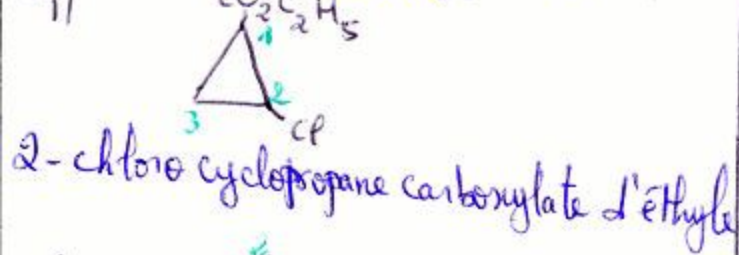 CO2C2H5
1
2
3
Cl
2-chloro cyclopropane carboxylate d'éthyle